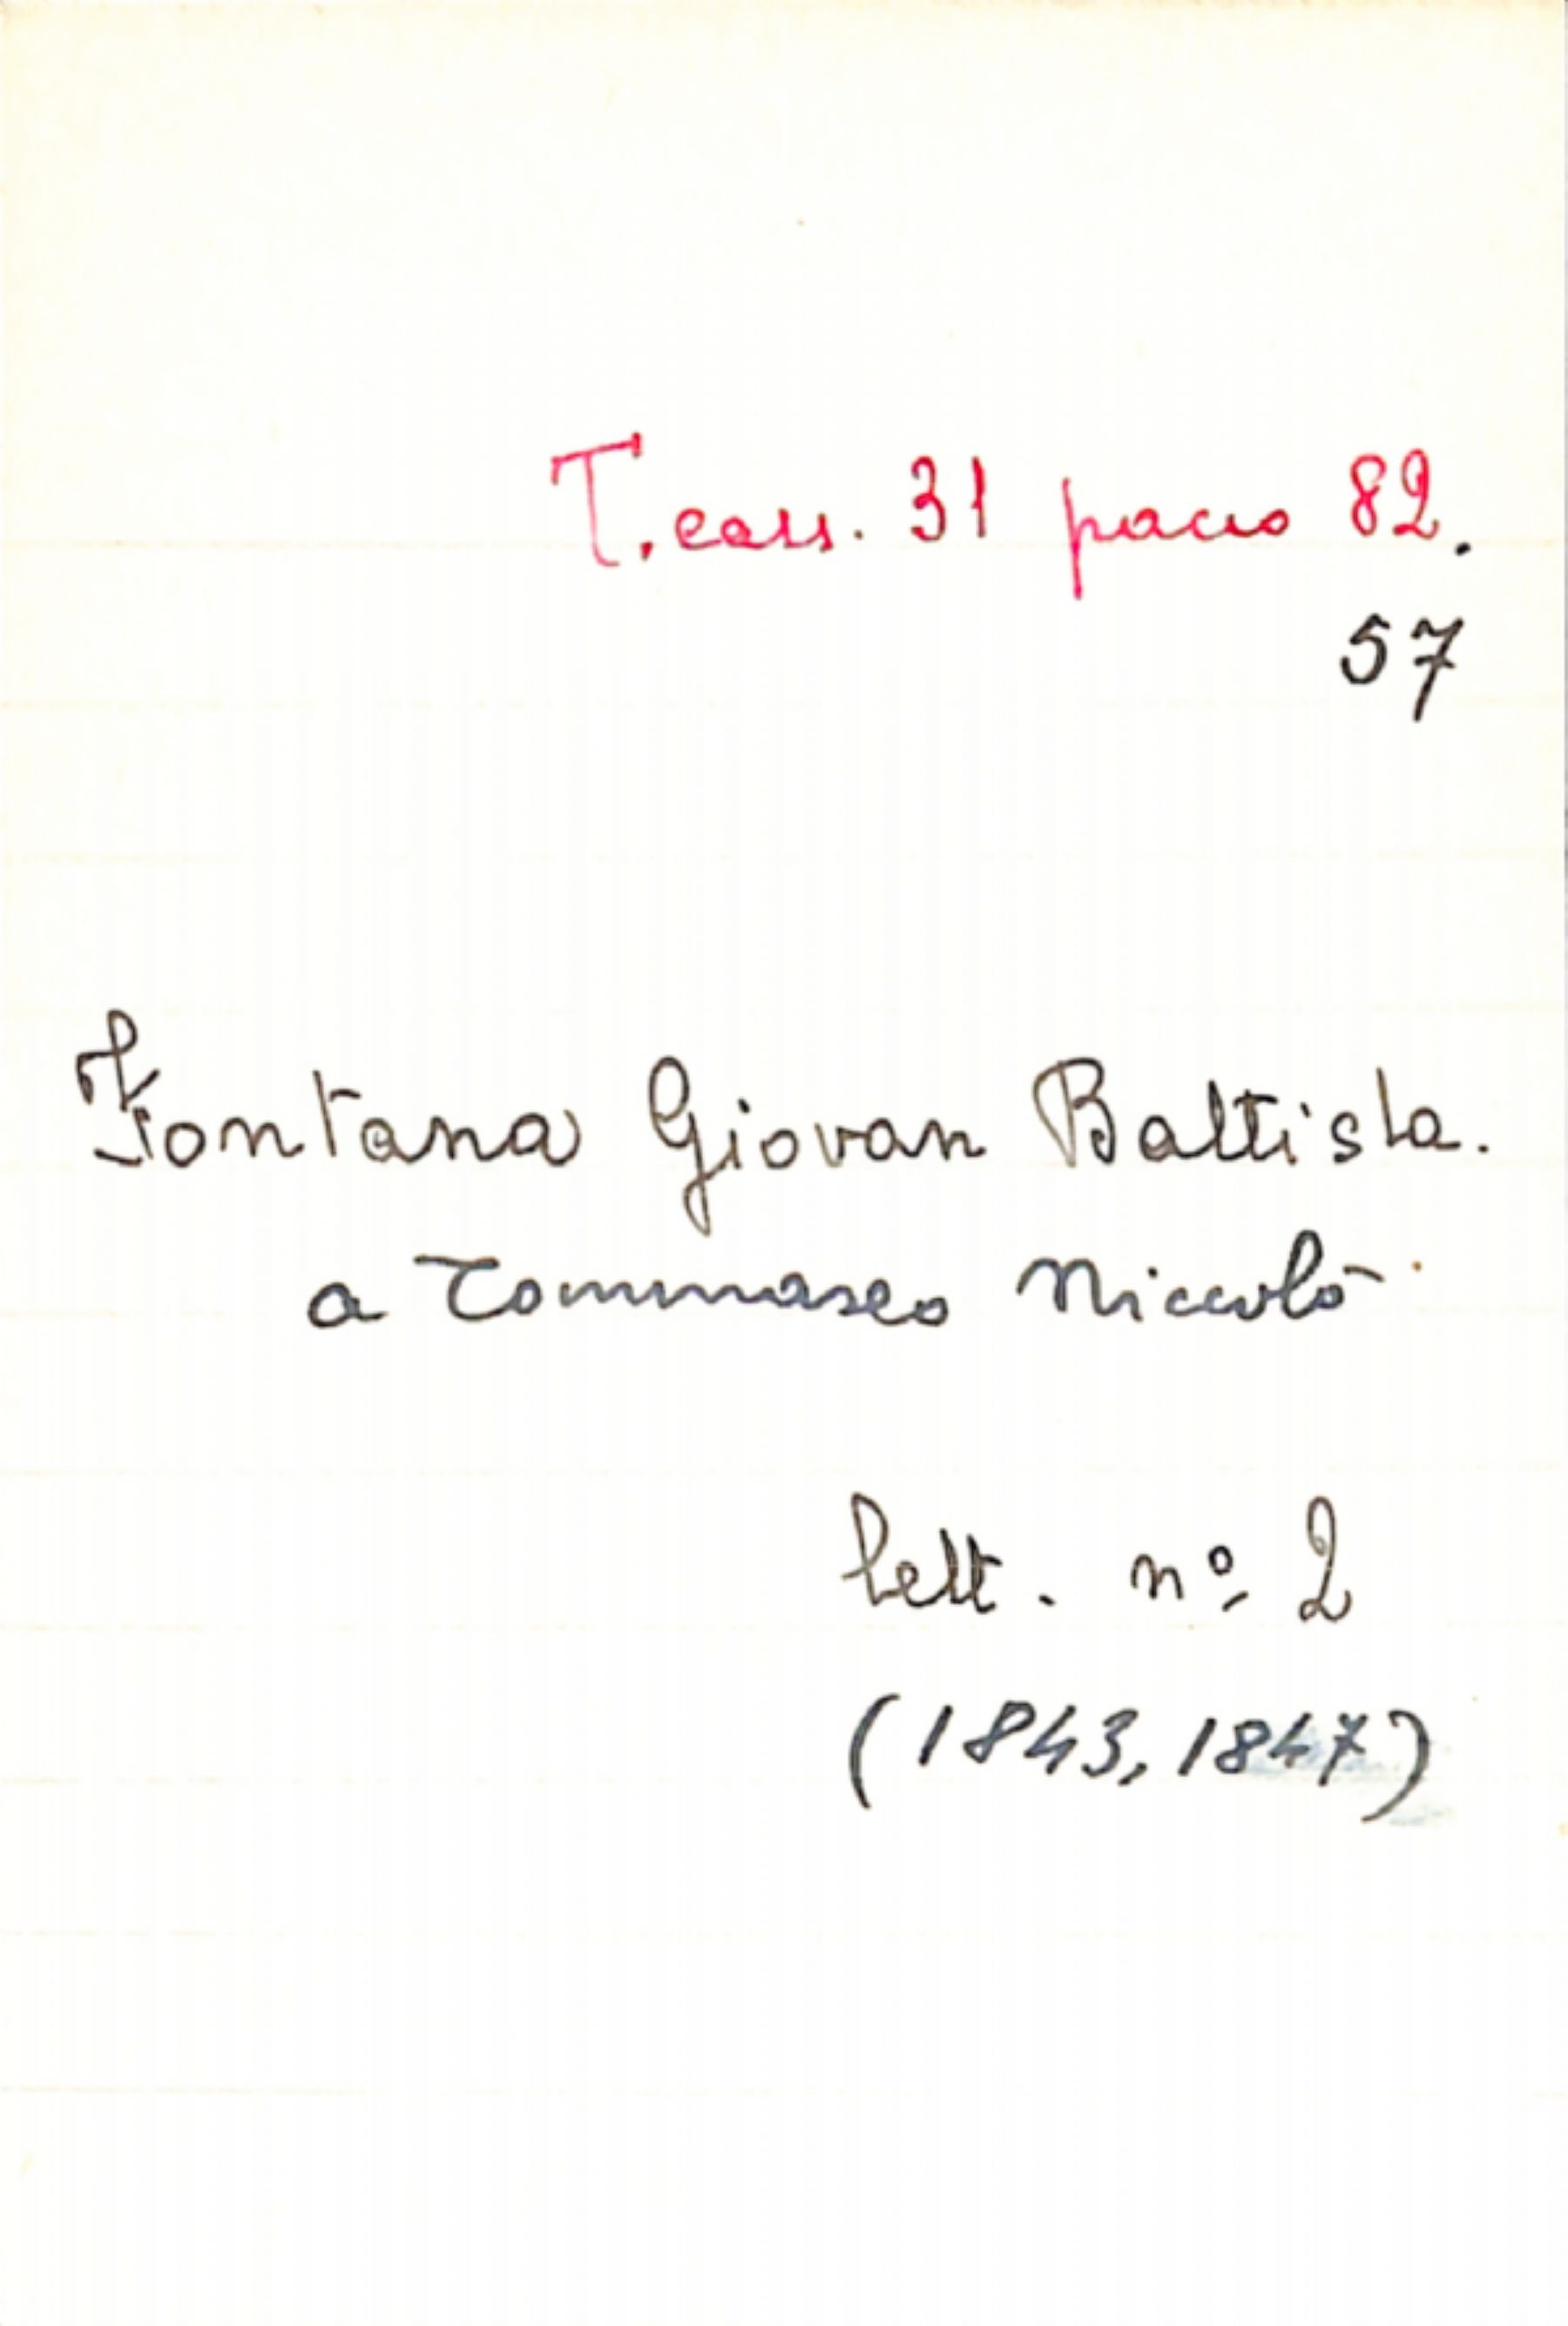 T. cass. 31 pacco 82.
57
Fontana Giovan Battista.
a Tommaseo Niccolò
lett. nº 2
(1843, 1847)